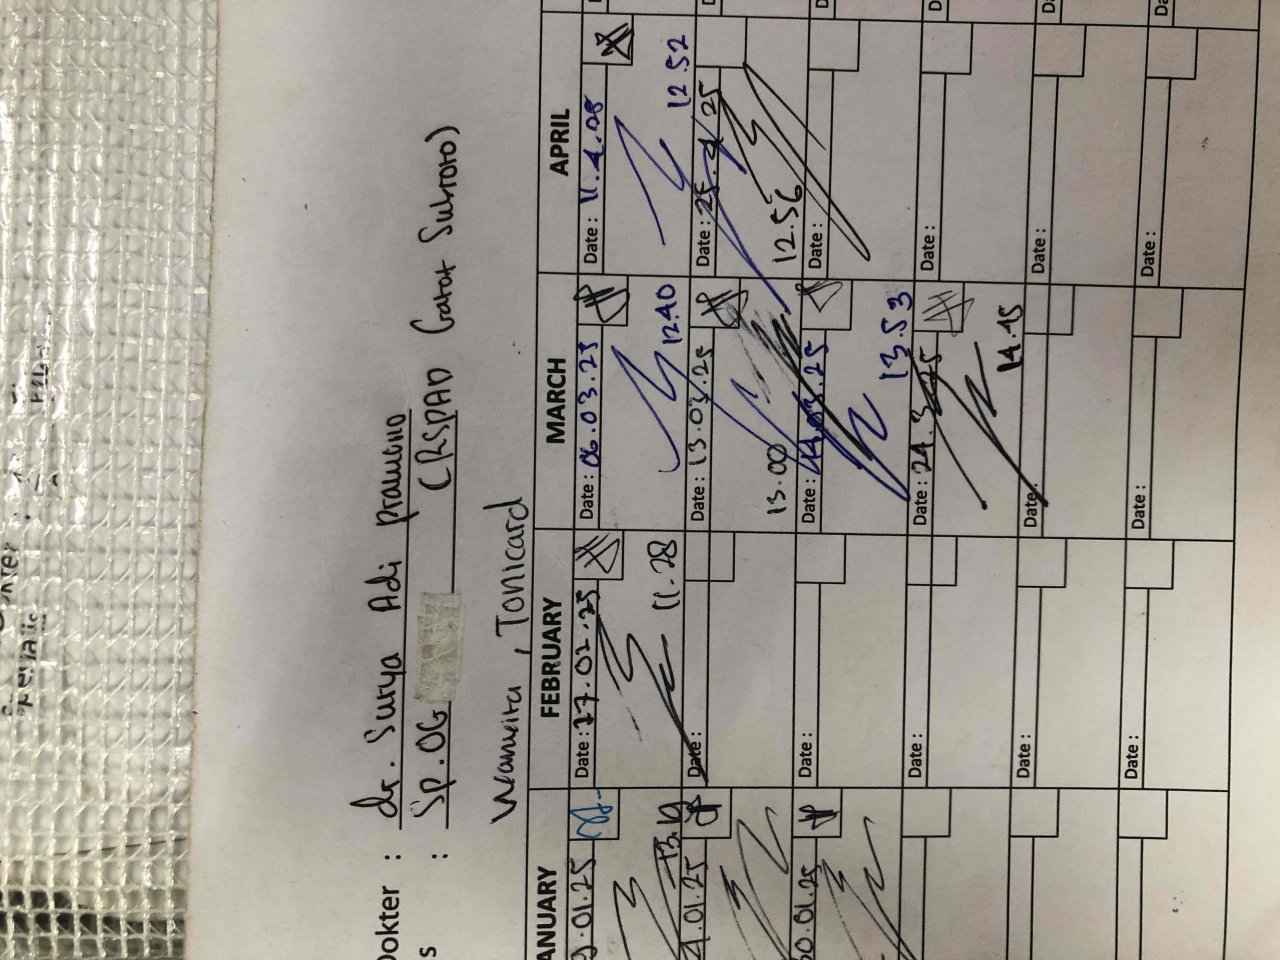 Dokter : dr. Surya Adi Pramono
s : Sp.OG (RSPAD Gatot Subroto)
Wanvita, Tonicard
ANUARY FEBRUARY MARCH APRIL
.01.25 Date : 27.02.25 Date : 06.03.25 Date : 11.4.25
13.19 11.28 12.40 12.52
.01.25 Date : Date : 13.03.25 Date : 25.4.25
13.00 12.56
0.01.25 Date : Date : .03.25 Date :
13.53
Date : Date : 24.3.25 Date :
14.15
Date : Date : Date :
Date : Date : Date :